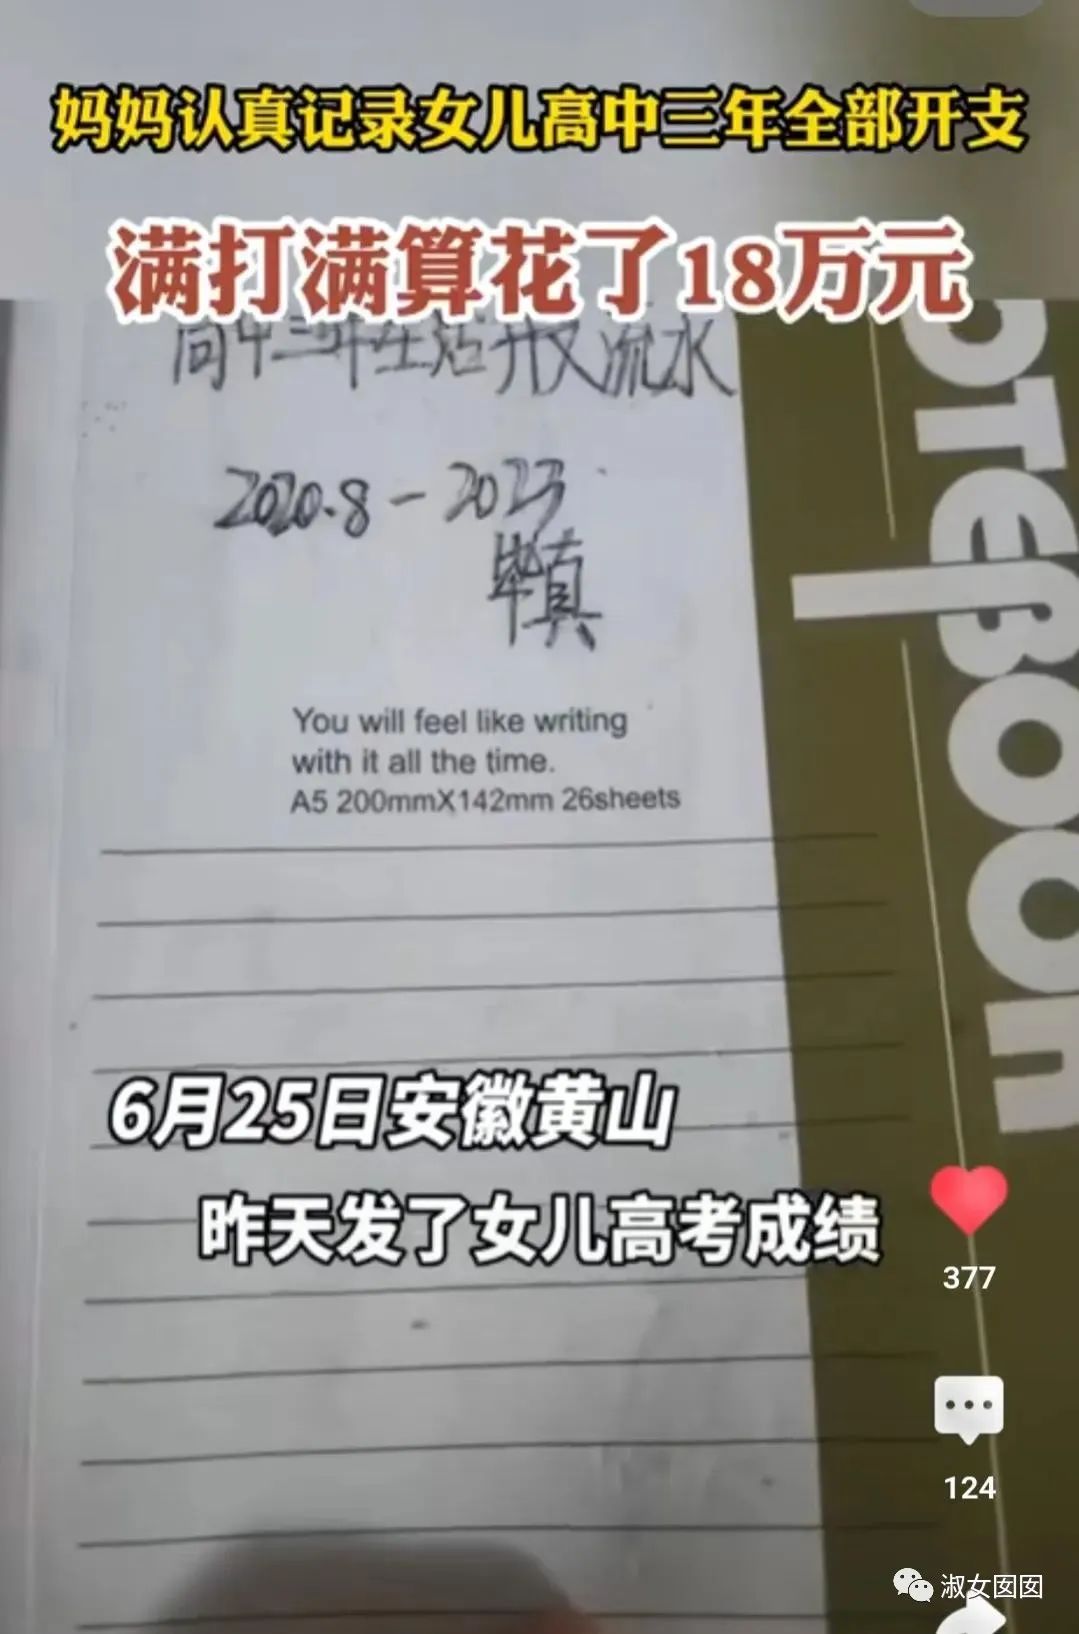 妈妈认真记录女儿高中三年全部开支
满打满算花了18万元
高中三年生活开支流水
2020.8-2023
You will feel like writing
with it all the time.
A5 200mmX142mm 26sheets
OTEBOOK
6月25日安徽黄山
昨天发了女儿高考成绩
377
124
淑女囡囡